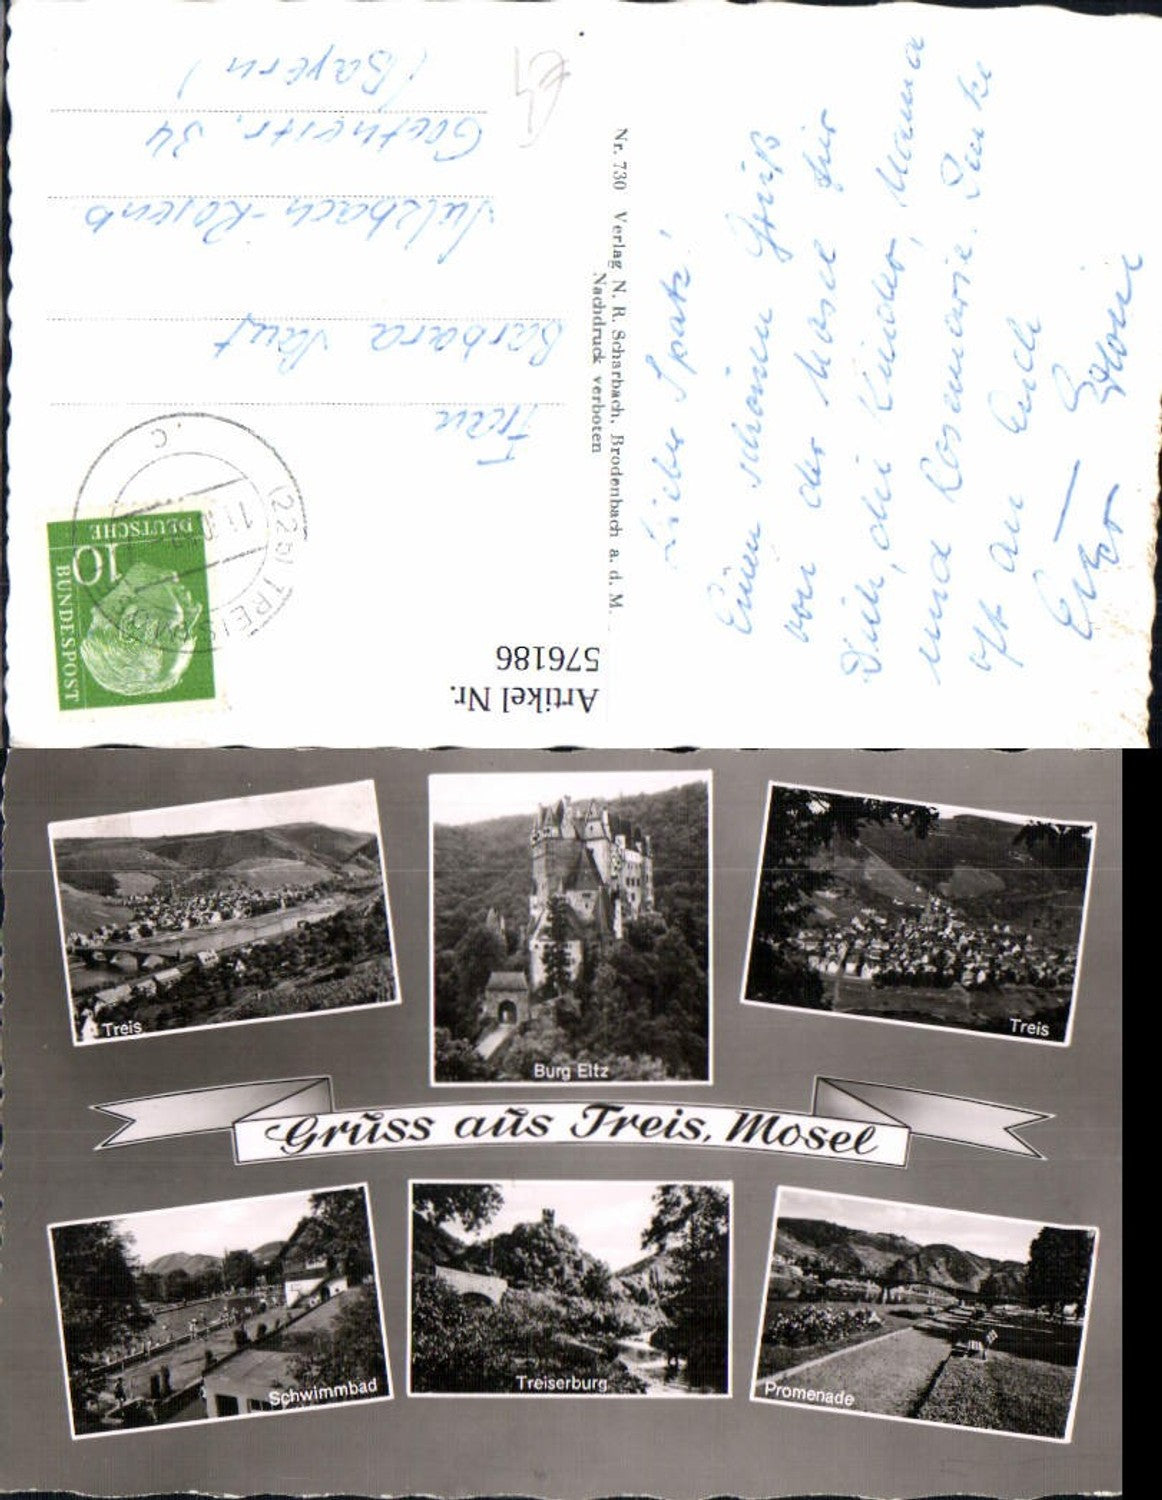 Lieber Spatz!
Einen schönen Gruß
von der Mosel für
Dich, die Kinder, Mama
und Rosemarie. Denke
oft an Euch
Frau
Barbara
Sulzbach-Rosenb
Goethestr. 34
(Bayern)
Nr. 730 Verlag N. R. Scharbach, Brodenbach a. d. M.
Nachdruck verboten
DEUTSCHE
BUNDESPOST
10
(22b) TREIS
Artikel Nr.
576186
Treis
Burg Eltz
Treis
Gruss aus Treis, Mosel
Schwimmbad
Treiserburg
Promenade